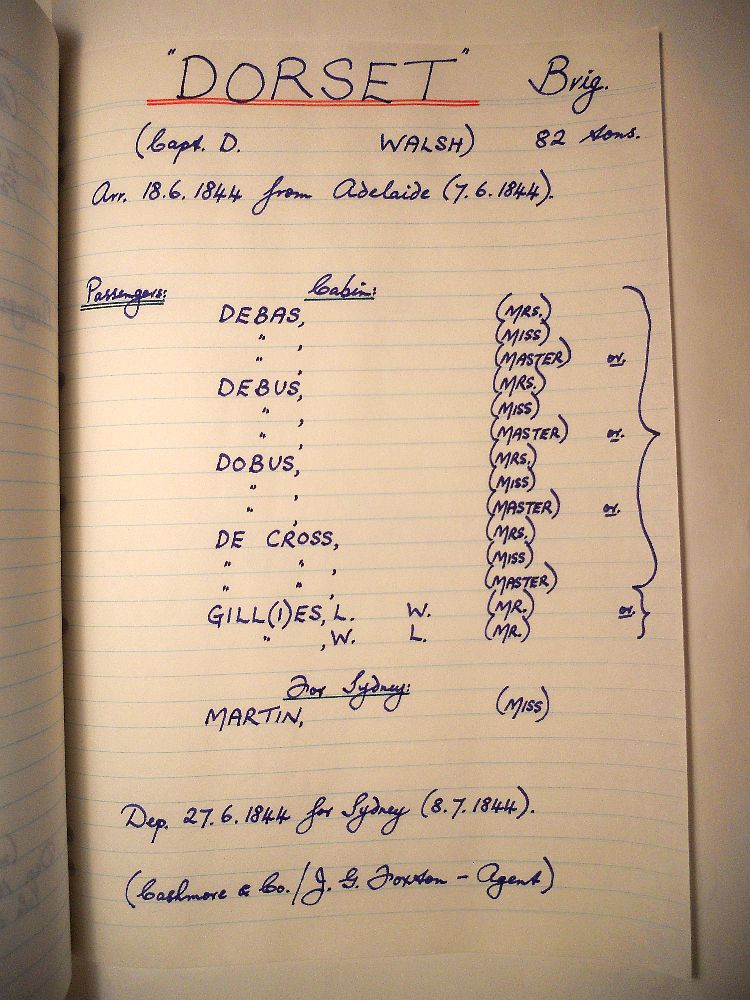 "DORSET" Brig.
(Capt. D. WALSH) 82 tons.
Arr. 18.6.1844 from Adelaide (7.6.1844).
Passengers: Cabin:
DEBAS, (MRS.)
" , (MISS)
" , (MASTER) or.
DEBUS, (MRS.)
" , (MISS)
" , (MASTER) or.
DOBUS, (MRS.)
" , (MISS)
" , (MASTER) or.
DE CROSS, (MRS.)
" " , (MISS)
" " , (MASTER)
GILL(I)ES, L. W. (MR.) or.
" , W. L. (MR.)
For Sydney:
MARTIN, (MISS)
Dep. 27.6.1844 for Sydney (8.7.1844).
(Cashmore & Co./J. G. Foxton - Agent)